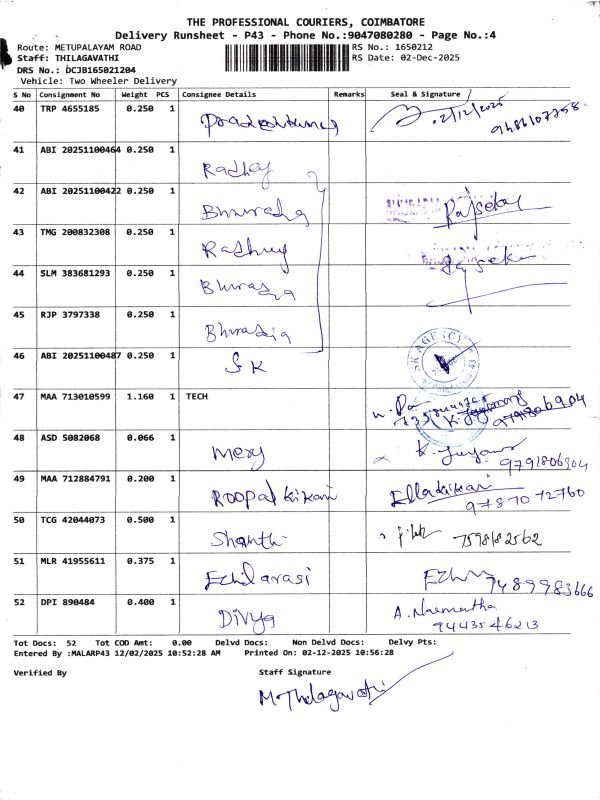 THE PROFESSIONAL COURIERS, COIMBATORE
Delivery Runsheet - P43 - Phone No.:9047080280 - Page No.:4
Route: METUPALAYAM ROAD RS No.: 1650212
Staff: THILAGAVATHI RS Date: 02-Dec-2025
DRS No.: DCJB165021204
Vehicle: Two Wheeler Delivery
S No Consignment No Weight PCS Consignee Details Remarks Seal & Signature
40 TRP 4655185 0.250 1 2/12/2025
41 ABI 20251100464 0.250 1
42 ABI 20251100422 0.250 1
43 TMG 200832308 0.250 1
44 SLM 383681293 0.250 1
45 RJP 3797338 0.250 1
46 ABI 20251100487 0.250 1 SK SK AGENCY
47 MAA 713010599 1.160 1 TECH 9791806904
48 ASD 5082068 0.066 1 Mery 9791806904
49 MAA 712884791 0.200 1 9787072760
50 TCG 42044073 0.500 1 Shanthi 7598182562
51 MLR 41955611 0.375 1 Ezhilarasi 7489983666
52 DPI 890484 0.400 1 Divya
9443546213
Tot Docs: 52 Tot COD Amt: 0.00 Delvd Docs: Non Delvd Docs: Delvy Pts:
Entered By :MALARP43 12/02/2025 10:52:28 AM Printed On: 02-12-2025 10:56:28
Verified By Staff Signature
M.Thilagavathi